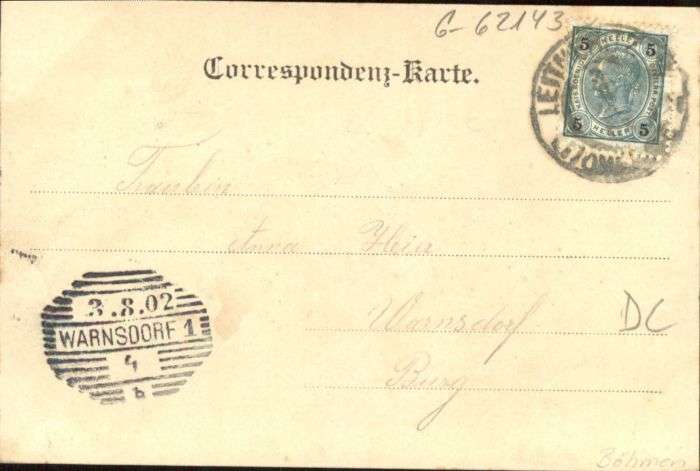 6-62143
Correspondenz-Karte.
5 HELLER 5
5 HELLER 5
LEITM
Fräulein
Anna Heir
Warnsdorf
Burg
DC
3.8.02
WARNSDORF 1
4
b
Böhmen